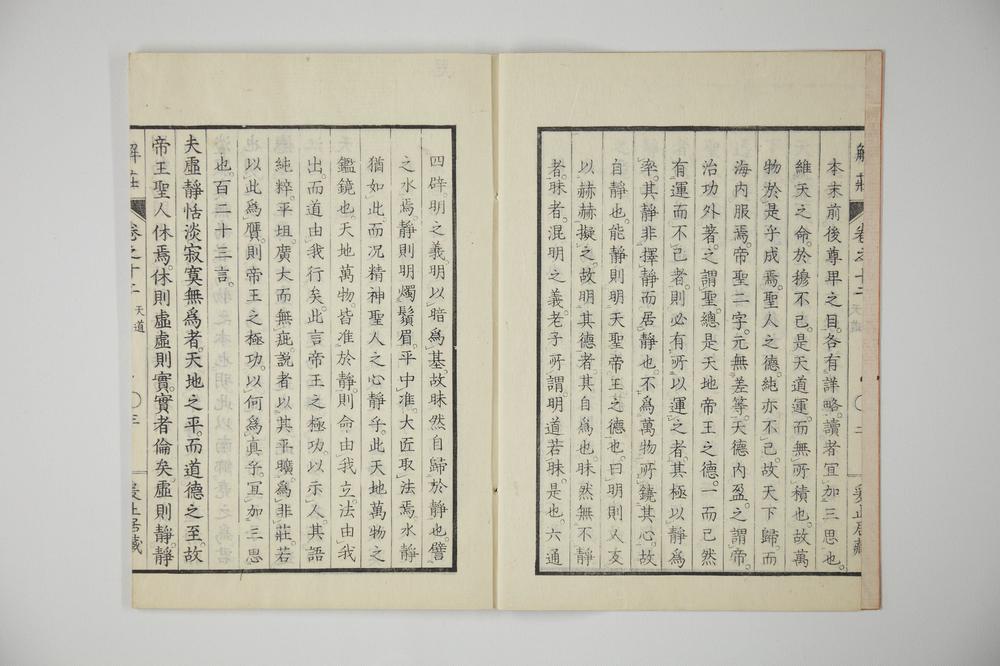 本末前後尊卑之目。各有詳略。讀者宜加三思也。
維天之命。於穆不已。是天道運。而無所積也。故萬
物於是乎成焉。聖人之德。純亦不已。故天下歸。而
海内服焉。帝聖二字。元無差等。天德内盈。之謂帝。
治功外著。之謂聖。總是天地帝王之德。一而已。然
有運而不已者。則必有所以運之者。其極以靜爲
率。其靜非擇靜而居靜也。不爲萬物所鐃其心。故
自靜也。能靜則明天聖帝王之德也。曰明則人友
以赫赫擬之。故明其德者。其自爲也。昧然無不靜
者。昧者。混明之義。老子所謂。明道若昧是也。六通
四辟明之義。明以暗爲基。故昧然自歸於靜也。譬
之水焉。靜則明燭鬚眉。平中准。大匠取法焉。水靜
猶如此。而况精神聖人之心靜乎。此天地萬物之
鑑鏡也。天地萬物。皆准於靜。則命由我立。法由我
出。而道由我行矣。此言帝王之極功。以示人。其語
純粹。平坦廣大而無疵。説者以其平曠。爲非莊。若
以此爲贋。則帝王之極功。以何爲真乎。宜加三思
也。百二十三言。
夫虛靜恬淡寂寞無爲者。天地之平。而道德之至。故
帝王聖人休焉。休則虛。虛則實。實者倫矣。虛則靜。靜
解莊
卷之十二
天道